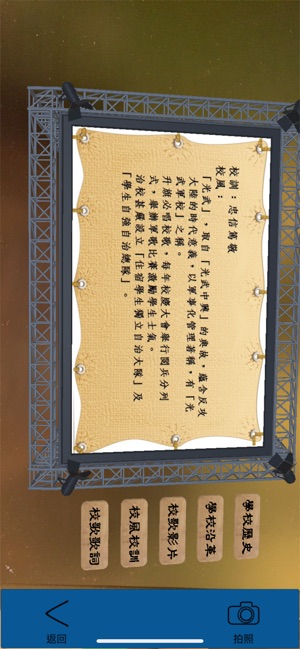 校訓：忠信篤敬
校風：
「光武」，取自「光武中興」的典故，蘊含反攻
大陸的時代意義，以軍事化管理著稱，有「光
武軍校」之稱。
升旗必唱校歌，每年校慶大會舉行閱兵分列
式，舉辦軍歌比賽激勵學生士氣。
治校甚嚴設立「住宿學生獨立自治大隊」及
「學生自強自治總隊」。
學校歷史
學校沿革
校歌影片
校風校訓
校歌歌詞
返回
拍照